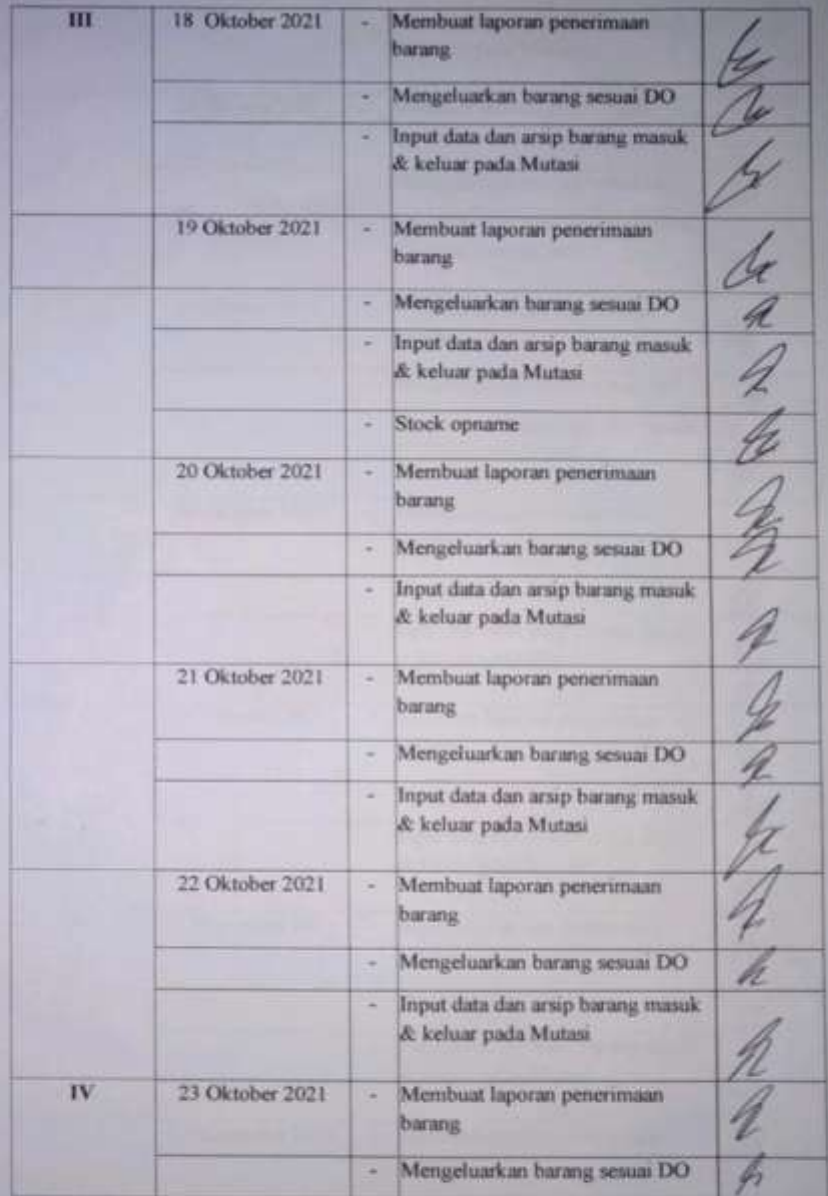 III 18 Oktober 2021 - Membuat laporan penerimaan
barang
- Mengeluarkan barang sesuai DO
- Input data dan arsip barang masuk
& keluar pada Mutasi
19 Oktober 2021 - Membuat laporan penerimaan
barang
- Mengeluarkan barang sesuai DO
- Input data dan arsip barang masuk
& keluar pada Mutasi
- Stock opname
20 Oktober 2021 - Membuat laporan penerimaan
barang
- Mengeluarkan barang sesuai DO
- Input data dan arsip barang masuk
& keluar pada Mutasi
21 Oktober 2021 - Membuat laporan penerimaan
barang
- Mengeluarkan barang sesuai DO
- Input data dan arsip barang masuk
& keluar pada Mutasi
22 Oktober 2021 - Membuat laporan penerimaan
barang
- Mengeluarkan barang sesuai DO
- Input data dan arsip barang masuk
& keluar pada Mutasi
IV 23 Oktober 2021 - Membuat laporan penerimaan
barang
- Mengeluarkan barang sesuai DO